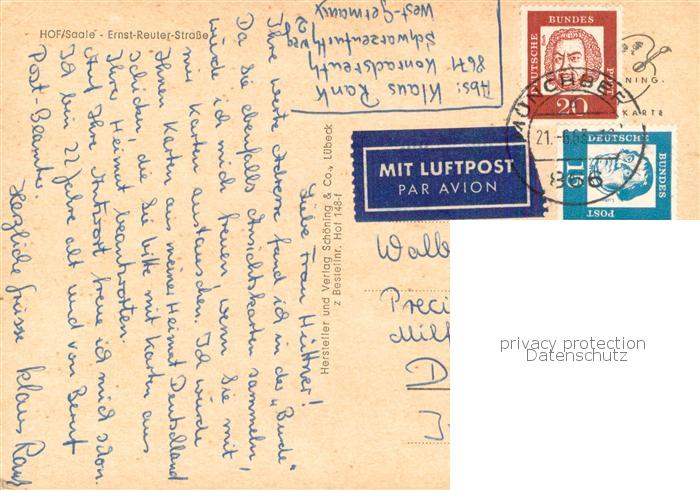 HOF/Saale - Ernst-Reuter-Straße
Abs: Klaus Rank
8671 Konradsreuth
Schwarzenfurth
West-Germany
Liebe Frau Hüttner!
Ihre werte Adresse fand ich in der „Bunde"
Da Sie ebenfalls Ansichtskarten sammeln,
würde ich mich freuen wenn Sie mit
mir Karten austauschen. Ich würde
Ihnen Karten aus meiner Heimat Deutschland
schicken, die Sie bitte mit Karten aus
Ihrer Heimat beantworten.
Auf Ihre Antwort freue ich mich schon.
Ich bin 22 Jahre alt und von Beruf
Post-Beamter.
Herzliche Grüsse Klaus Rank
Hersteller und Verlag Schöning & Co., Lübeck
z Bestellnr. Hof 148-f
MIT LUFTPOST
PAR AVION
DEUTSCHE
BUNDES
POST
20
MÜNCHBERG
21.-6.63
866
DEUTSCHE
BUNDES
POST
15
NING.
KARTE
Walb
Preci
Milf
privacy protection
Datenschutz